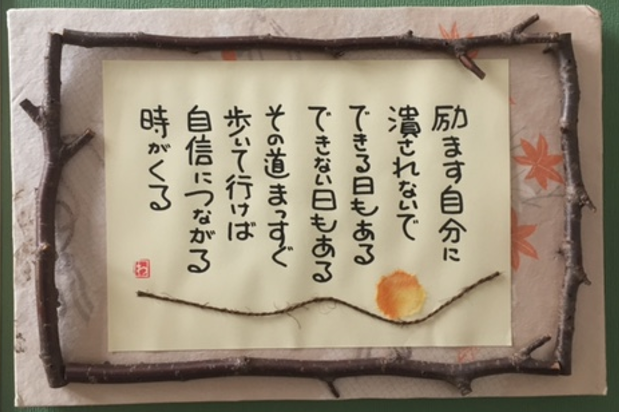 励ます自分に
潰されないで
できる日もある
できない日もある
その道まっすぐ
歩いて行けば
自信につながる
時がくる